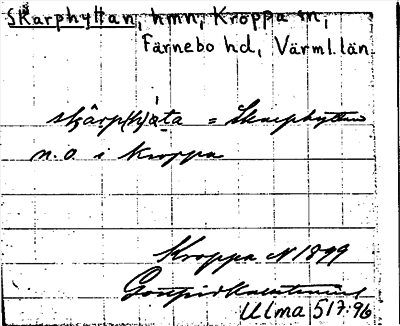 Skarphyttan, hmn, Kroppa sn,
Färnebo hd, Värml. län.
skärp(h)àta = Skarphyttan
n. o. i Kroppa
Kroppa N 1899
Ulma 517:96